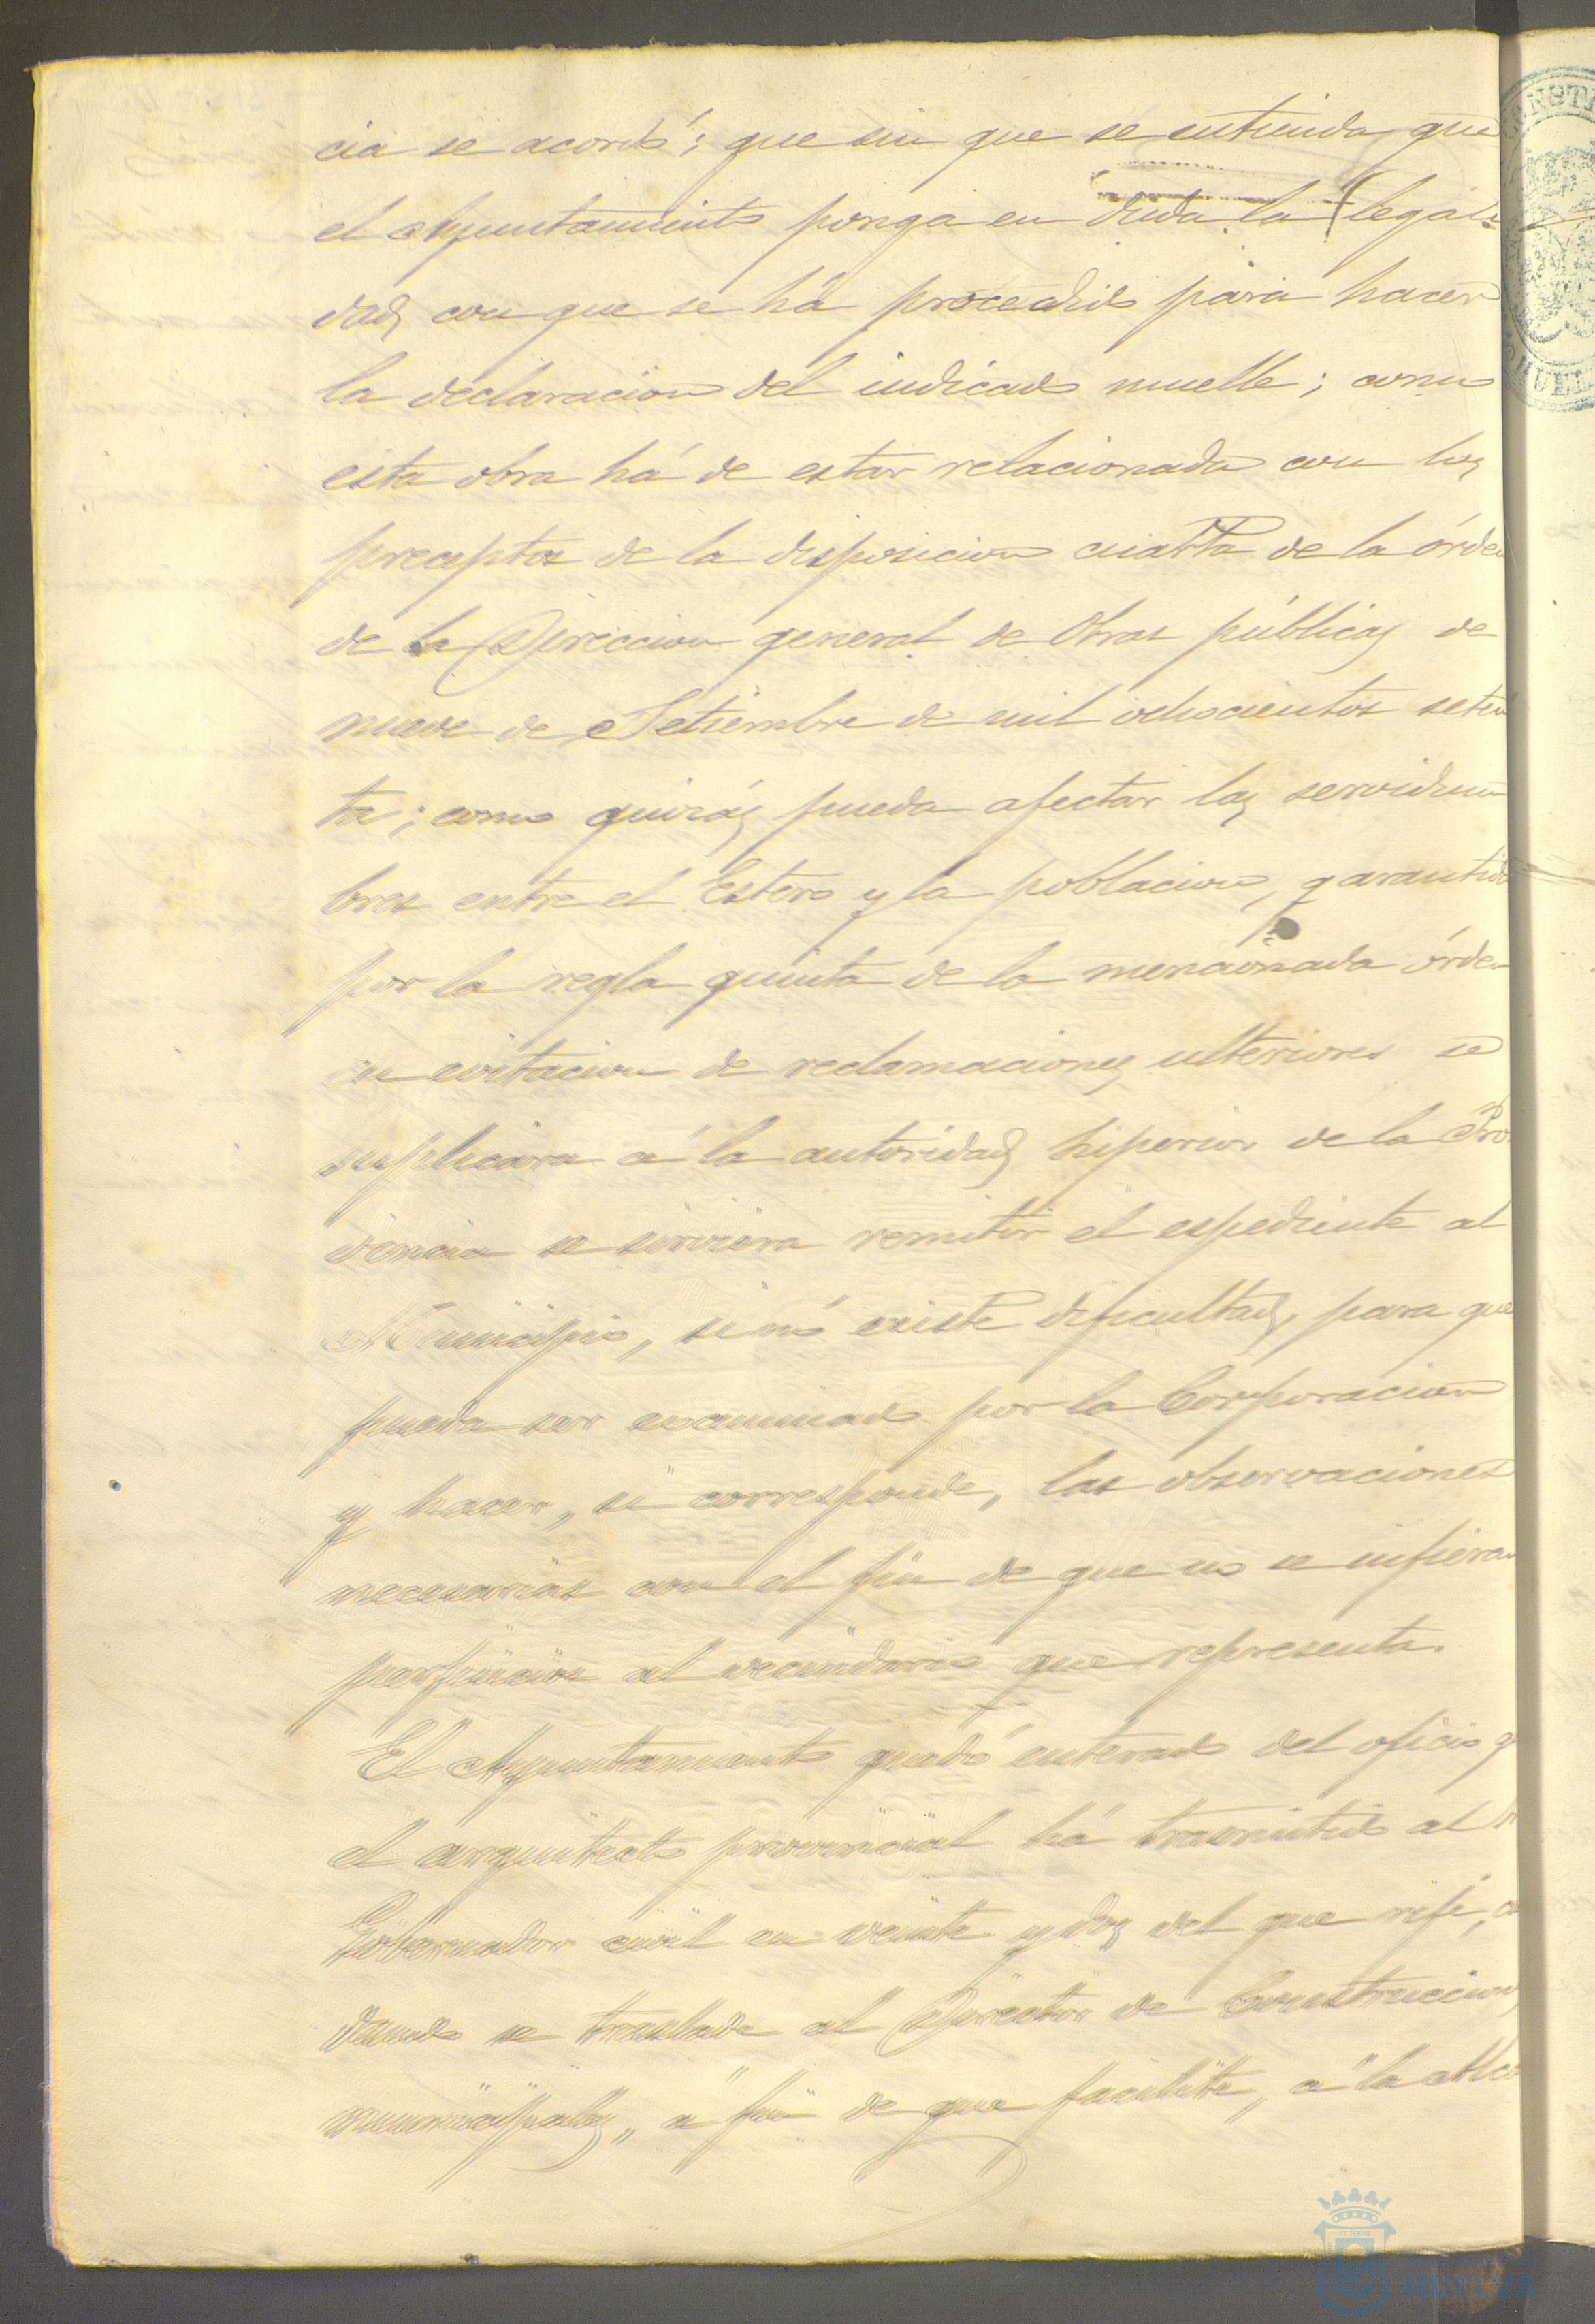 cia se acordó; que sin que se entienda que
el Ayuntamiento ponga en duda la legali-
dad con que se há procedido para hacer
la declaracion del indicado muelle; como
esta obra há de estar relacionada con los
preceptos de la disposicion cuarta de la órden
de la Direccion general de Obras públicas de
nueve de Setiembre de mil ochocientos seten
ta; como quizás pueda afectar las servidum
bres entre el Estero y la poblacion, garantida
por la regla quinta de la mencionada órden
en evitacion de reclamaciones ulteriores se
suplicára á la autoridad superior de la Pro
vincia se sirviera remitir el espediente al
Municipio, si nó existe dificultad, para que
pueda ser examinado por la Corporacion
y hacer, si corresponde, las observaciones
necesarias con el fin de que no se infieran
perjuicios al vecindario que representa.
El Ayuntamiento quedó enterado del oficio q
el arquitecto provincial há trasmitido al
Gobernador civil en veinte y dos del que rije,
dando se traslade al Director de Construcciones
municipales, á fin de que facilite, á la Alca
HUELVA